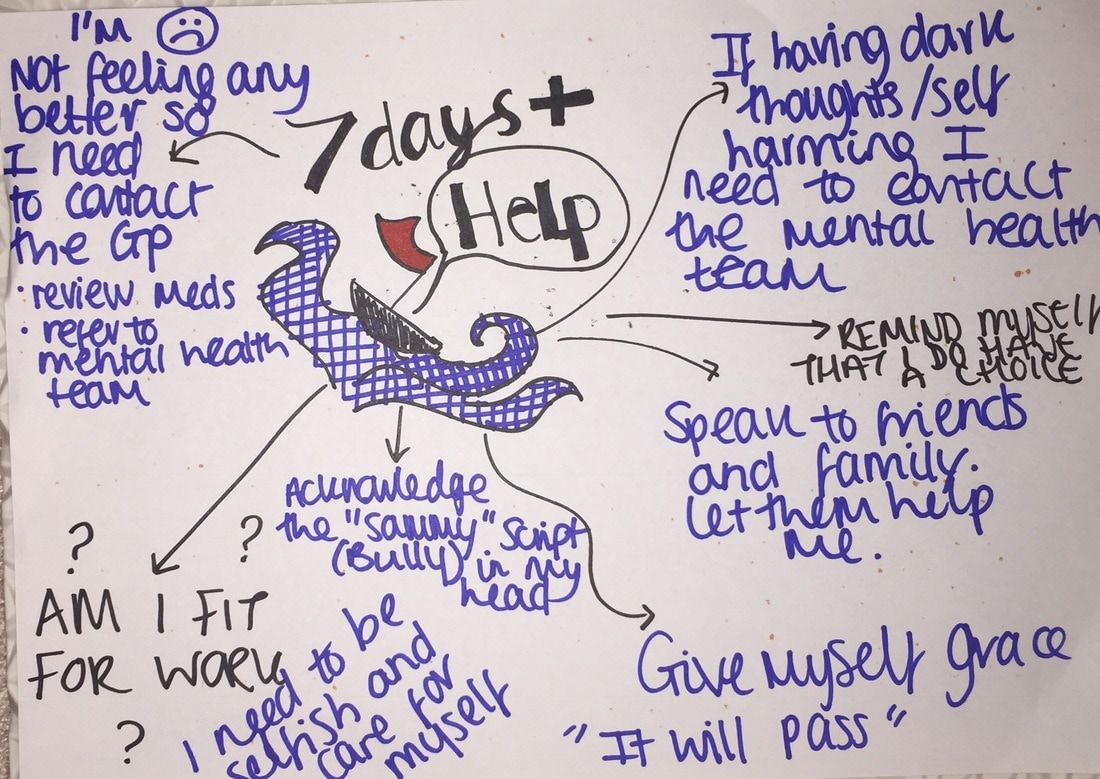 7 days +
Help
I'm
Not feeling any
better so
I need
to contact
the GP
· review meds
· refer to
mental health
team
If having dark
thoughts/self
harming I
need to contact
the mental health
team
REMIND MYSELF
THAT I DO HAVE
A CHOICE
Speak to friends
and family.
Let them help
me.
Acknowledge
the "Sammy" script
(Bully) in my
head
? ?
AM I FIT
FOR WORK
?
I need to be
selfish and
care for
myself
Give myself grace
"It will pass"